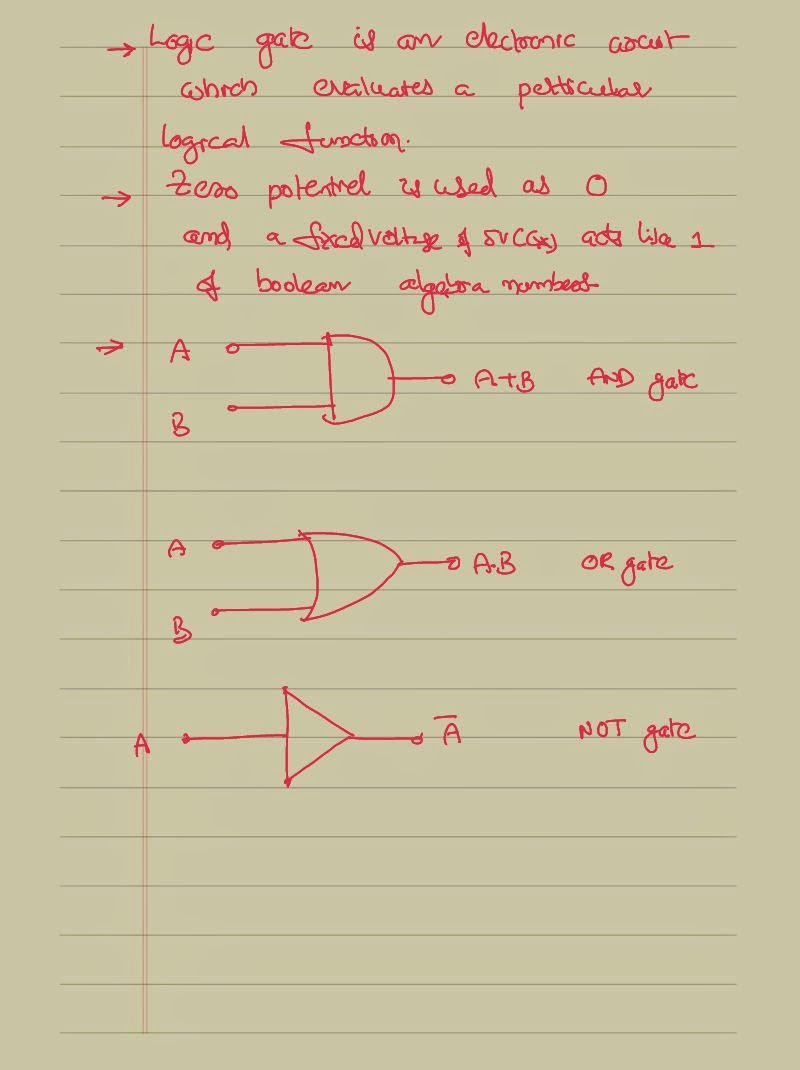 → Logic gate is an electronic circuit
which evaluates a perticular
logical function.
→ Zero potential is used as 0
and a fixed voltage of 5V(Gx) acts like 1
of boolean algebra numbers
→ A A+B AND gate
B
A A.B OR gate
B
A A̅ NOT gate